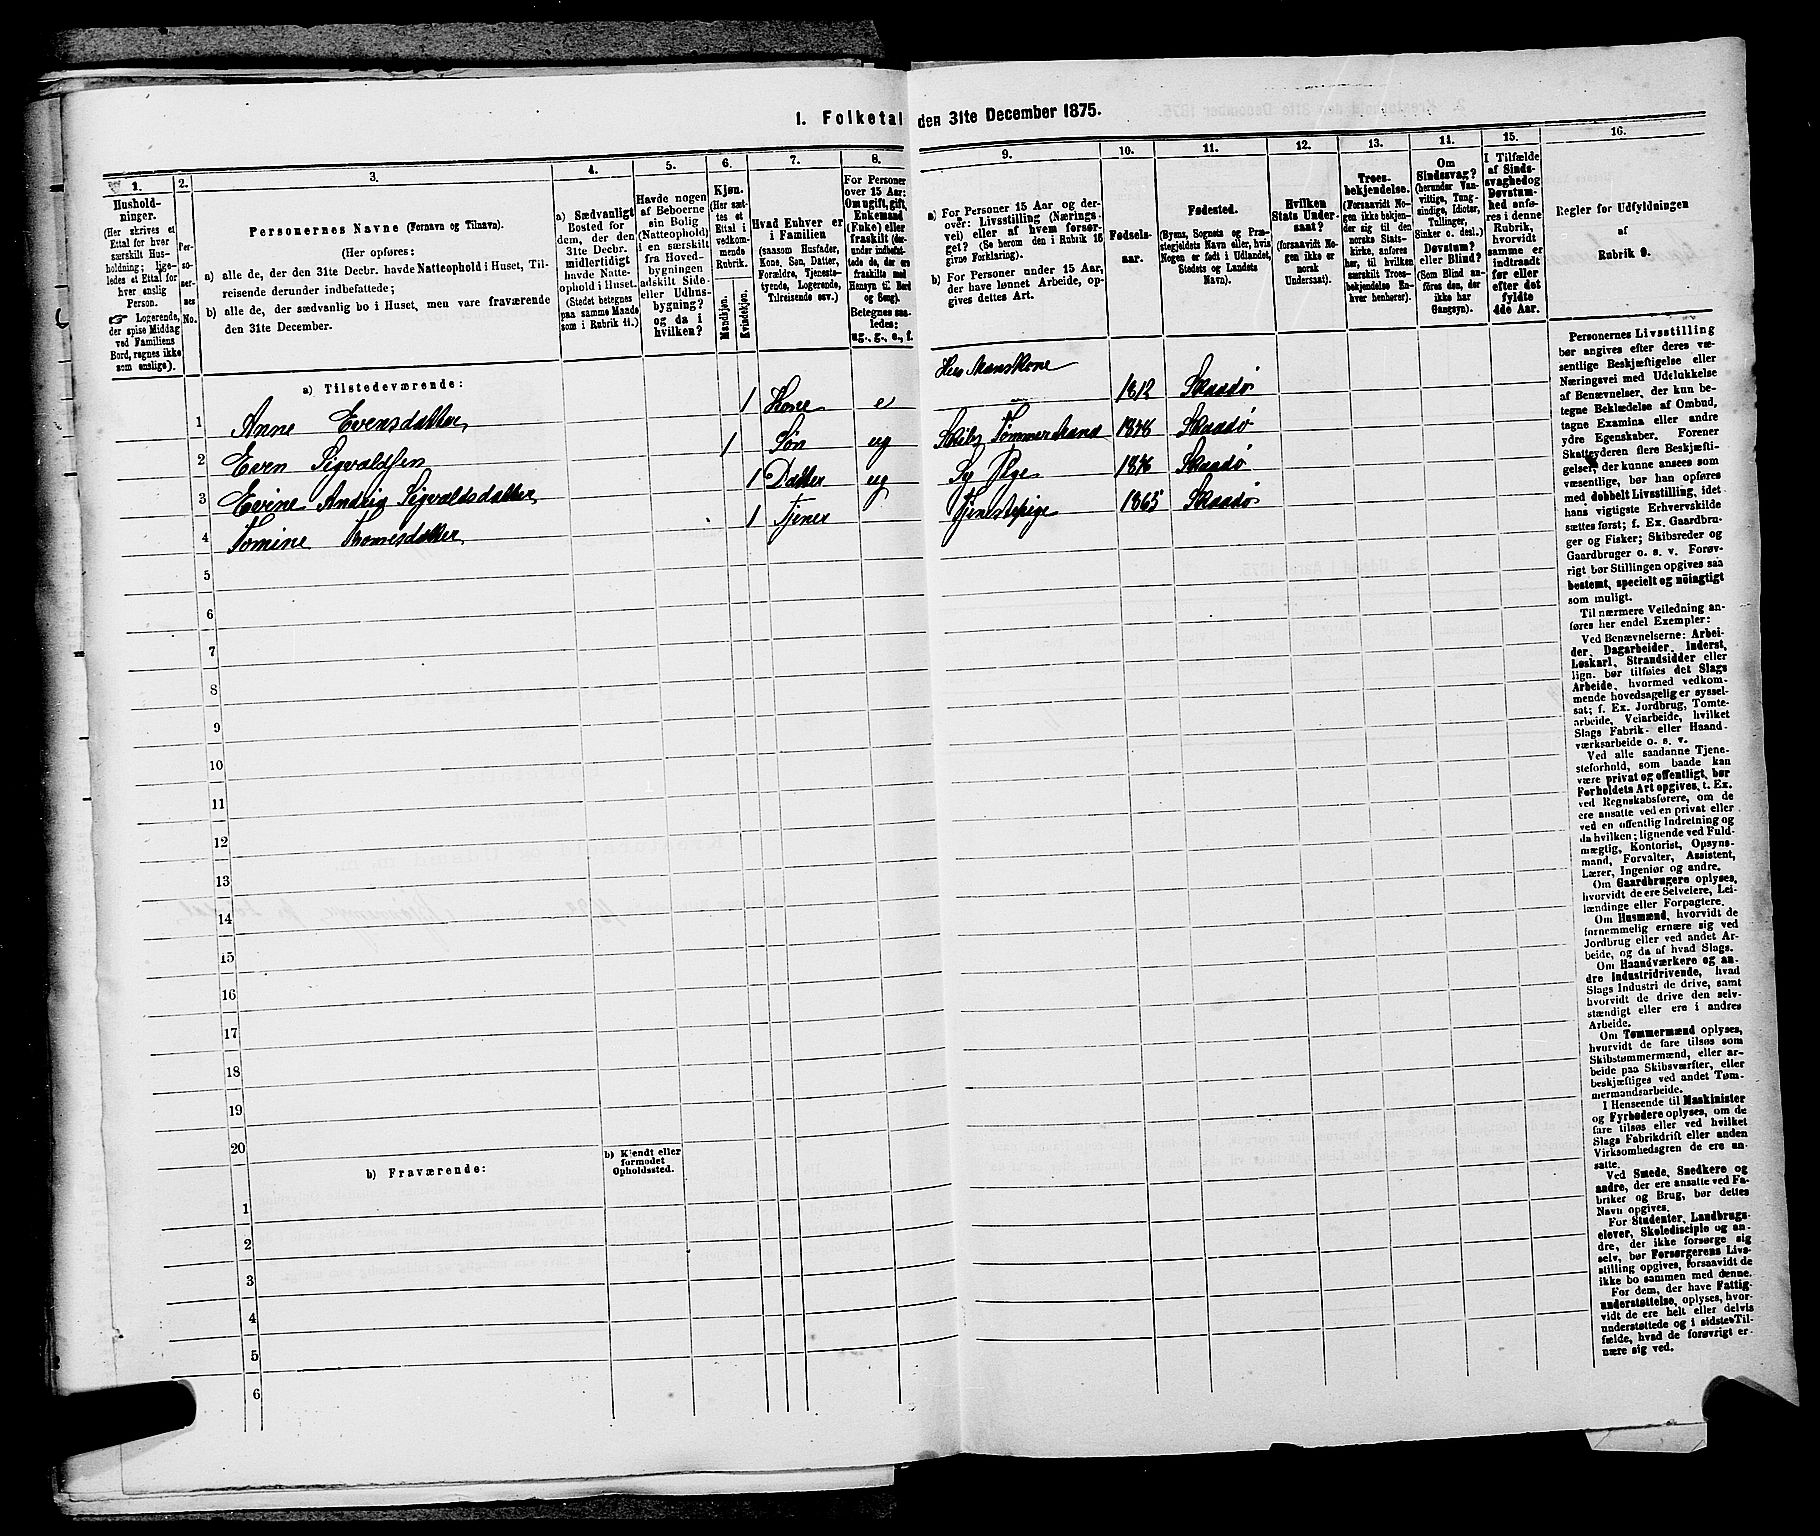 1. Folketal den 31te December 1875.
1. 2. 3. 4. 5. 6. 7. 8. 9. 10. 11. 12. 13. 14. 15. 16.
Hushold-
ninger.
(Her skrives et
Ettal for hver
særskilt Hus-
holdning; lige-
ledes et Ettal for
hver enslig
Person.
☞ Logerende,
der spise Middag
ved Familiens
Bord, regnes ikke
som enslige).
Per-
so-
ner-
nes
No.
Personernes Navne (Fornavn og Tilnavn).
(Her opføres:
a) alle de, der den 31te Decbr. havde Natteophold i Huset, Til-
reisende derunder indbefattede;
b) alle de, der sædvanlig bo i Huset, men vare fraværende
den 31te December.
a) Sædvanligt
Bosted for
dem, der den
31te Decbr.
midlertidigt
havde Natte-
ophold i Huset.
(Stedet betegnes
paa samme Maade
som i Rubrik 11.)
Havde nogen
af Beboerne
sin Bolig
(Natteophold)
i en særskilt
fra Hoved-
bygningen
adskilt Side-
eller Udhus-
bygning?
og da i
hvilken?
Kjøn.
(Her sæt-
tes et
Ettal i
vedkom-
mende
Rubrik.
Mandkjøn.
Kvindekjøn.
Hvad Enhver er
i Familien
(saasom Husfader,
Kone, Søn, Datter,
Forældre, Tjeneste-
tyende, Logerende,
Tilreisende osv.)
For Personer
over 15 Aar:
Om ugift, gift,
Enkemand
(Enke) eller
fraskilt (der-
under indbefat-
tede de, der ere
fraskilte med
Hensyn til Bord
og Seng).
Betegnes saa-
ledes:
ug., g., e., f.
a) For Personer 15 Aar og der-
over: Livsstilling (Nærings-
vei) eller af hvem forsør-
get? (Se herom den i Rubrik 16
givne Forklaring).
b) For Personer under 15 Aar,
der have lønnet Arbeide, op-
gives dettes Art.
Fødsels-
aar.
Fødested.
(Byens, Sognets og Præ-
stegjeldets Navn eller, hvis
Nogen er født i Udlandet,
Stedets og Landets
Navn).
Hvilken
Stats Under-
saat?
(forsaavidt No-
gen ikke er
norsk
Undersaat).
Troes-
bekjendelse.
(Forsaavidt Nogen
ikke bekjen-
der sig til den
norske Stats-
kirke, anføres
her, til hvilken
særskilt Troes-
bekjendelse En-
hver henhører).
Om
Sindssvag?
(herunder Van-
vittige, Tung-
sindige, Idioter,
Tullinger,
Sinker o. desl.)
Døvstum?
eller Blind?
(Som Blind an-
føres den, der
ikke har
Gangsyn).
I Tilfælde
af Sinds-
svaghed og
Døvstum-
hed anfø-
res i denne
Rubrik,
hvorvidt
samme er
indtraadt
før eller
efter det
fyldte
4de Aar.
Regler for Udfyldningen
af
Rubrik 9.
a) Tilstedeværende:
1 Anne Evensdatter 1 Kone e Hus Manskone 1812 Skaadø
2 Even Sigvaldsen 1 Søn ug Skibs Tømmermand Skaadø
3 Evine Andria Sigvaldsdatter 1 Datter ug Sy Pige Skaadø
4 Tomine Tomesdatter 1 Tjener Tjenestepige 1865 Skaadø
5
6
7
8
9
10
11
12
13
14
15
16
17
18
19
20
b) Fraværende:
b) Kjendt eller
formodet
Opholdssted.
1
2
3
4
5
6
Personernes Livsstilling
bør angives efter deres væ-
sentlige Beskjæftigelse eller
Næringsvei med Udelukkelse
af Benævnelser, der kun be-
tegne Beklædelse af Ombud,
tagne Examina eller andre
ydre Egenskaber. Forener
Skatteyderen flere Beskjæfti-
gelser, der kunne ansees som
væsentlige, bør han opføres
med dobbelt Livsstilling, idet
hans vigtigste Erhvervskilde
sættes først; f. Ex. Gaardbru-
ger og Fisker; Skibsreder og
Gaardbruger o. s. v. Forøv-
rigt bør Stillingen opgives saa
bestemt, specielt og nöiagtigt
som muligt.
Til nærmere Veiledning an-
føres her endel Exempler:
Ved Benævnelserne: Arbei-
der, Dagarbeider, Inderst,
Løskarl, Strandsidder eller
lign. bør tilføies det Slags
Arbeide, hvormed vedkom-
mende hovedsagelig er syssel-
sat; f. Ex. Jordbrug, Tomte-
arbeide, Veiarbeide, hvilket
Slags Fabrik- eller Haand-
værksarbeide o. s. v.
Ved alle saadanne Tjene-
steforhold, som baade kan
være privat og offentligt, bør
Forholdets Art opgives, t. Ex.
ved Regnskabsførere, om de
ere ansatte ved en privat eller
ved en offentlig Indretning og
da hvilken; lignende ved Fuld-
mægtig, Kontorist, Opsyns-
mand, Forvalter, Assistent,
Lærer, Ingeniør og andre.
Om Gaardbrugere oplyses,
hvorvidt de ere Selveiere, Lei-
lændinge eller Forpagtere.
Om Husmænd, hvorvidt de
fornemmelig ernære sig ved
Jordbrug eller ved andet Ar-
beide, og da af hvad Slags.
Om Haandværkere og an-
dre Industridrivende, hvad
Slags Industri de drive, samt
hvorvidt de drive den selv-
stændigt eller ere i andres
Arbeide.
Om Tømmermænd oplyses,
hvorvidt de fare tilsøs som
Skibstømmermænd, eller ar-
beide paa Skibsværfter, eller
beskjæftiges ved andet Tøm-
mermandsarbeide.
I Henseende til Maskinister
og Fyrbødere oplyses, om de
fare tilsøs eller ved hvilket
Slags Fabrikdrift eller anden
Virksomhedsgren de ere an-
satte.
Ved Smede, Snedkere og
andre, der ere ansatte ved Fa-
briker og Brug, bør dettes
Navn opgives.
For Studenter, Landbrugs-
elever, Skoledisciple og an-
dre, der ikke forsørge sig
selv, bør Forsørgerens Livs-
stilling opgives, forsaavidt de
ikke bo sammen med denne.
For dem, der have Fattig-
understøttelse, oplyses, hvor-
vidt de ere helt eller delvis
understøttede og i sidste Til-
fælde, hvad de forøvrigt er-
nære sig ved.